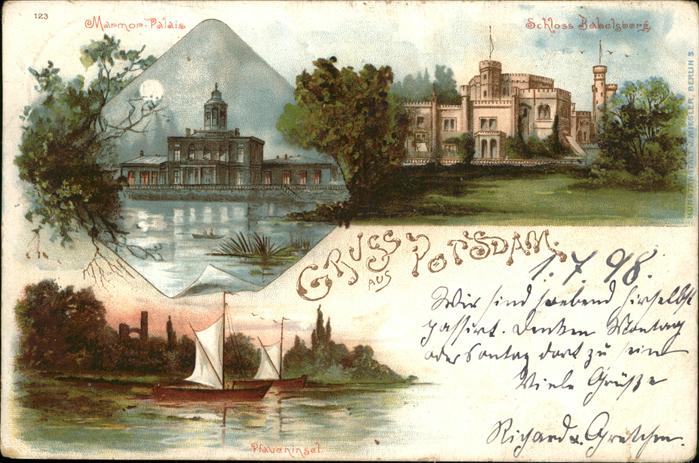 123
Marmor-Palais
Schloss Babelsberg
GRUSS
AUS
POTSDAM.
1.7.98.
Wir sind soebend hierselbst
passirt. Denken Montag
oder Sontag dort zu sein
Viele Grüße
Richard u. Gretchen.
Pfaueninsel
BERLIN S